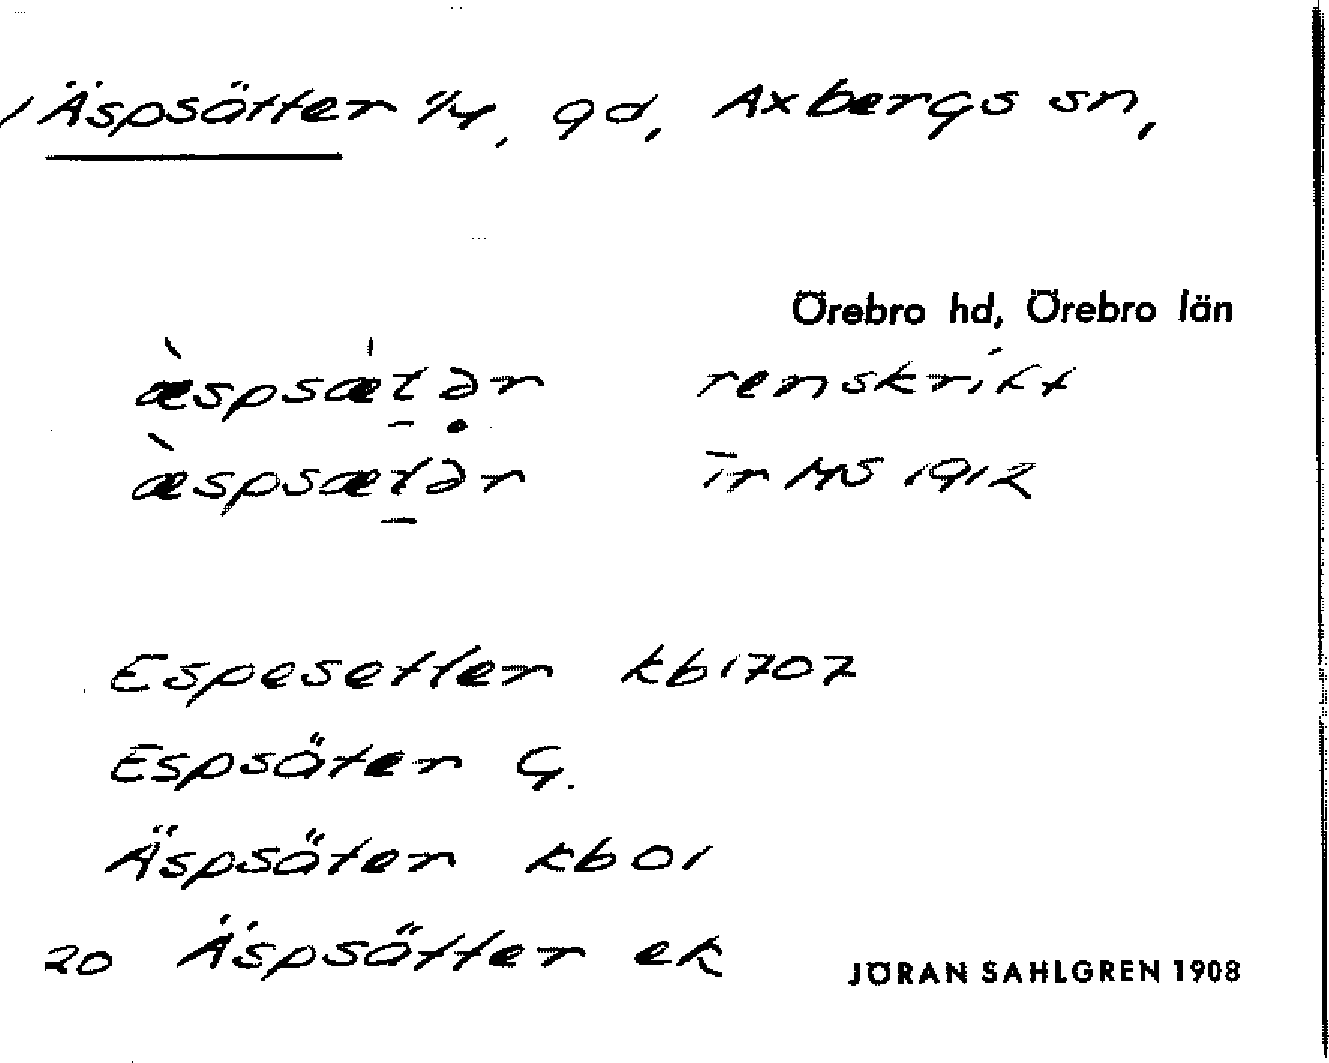 Äspsätter 1/4, gd, Axbergs sn,
Örebro hd, Örebro län
æ̀spsæ̍t̠ər renskrift
æ̀spsæt̠ə̇r ir MS 1912
Espesetter kb 1707
Espsäter G.
Äspsäter kb 01
20 Äspsätter ek
JÖRAN SAHLGREN 1908